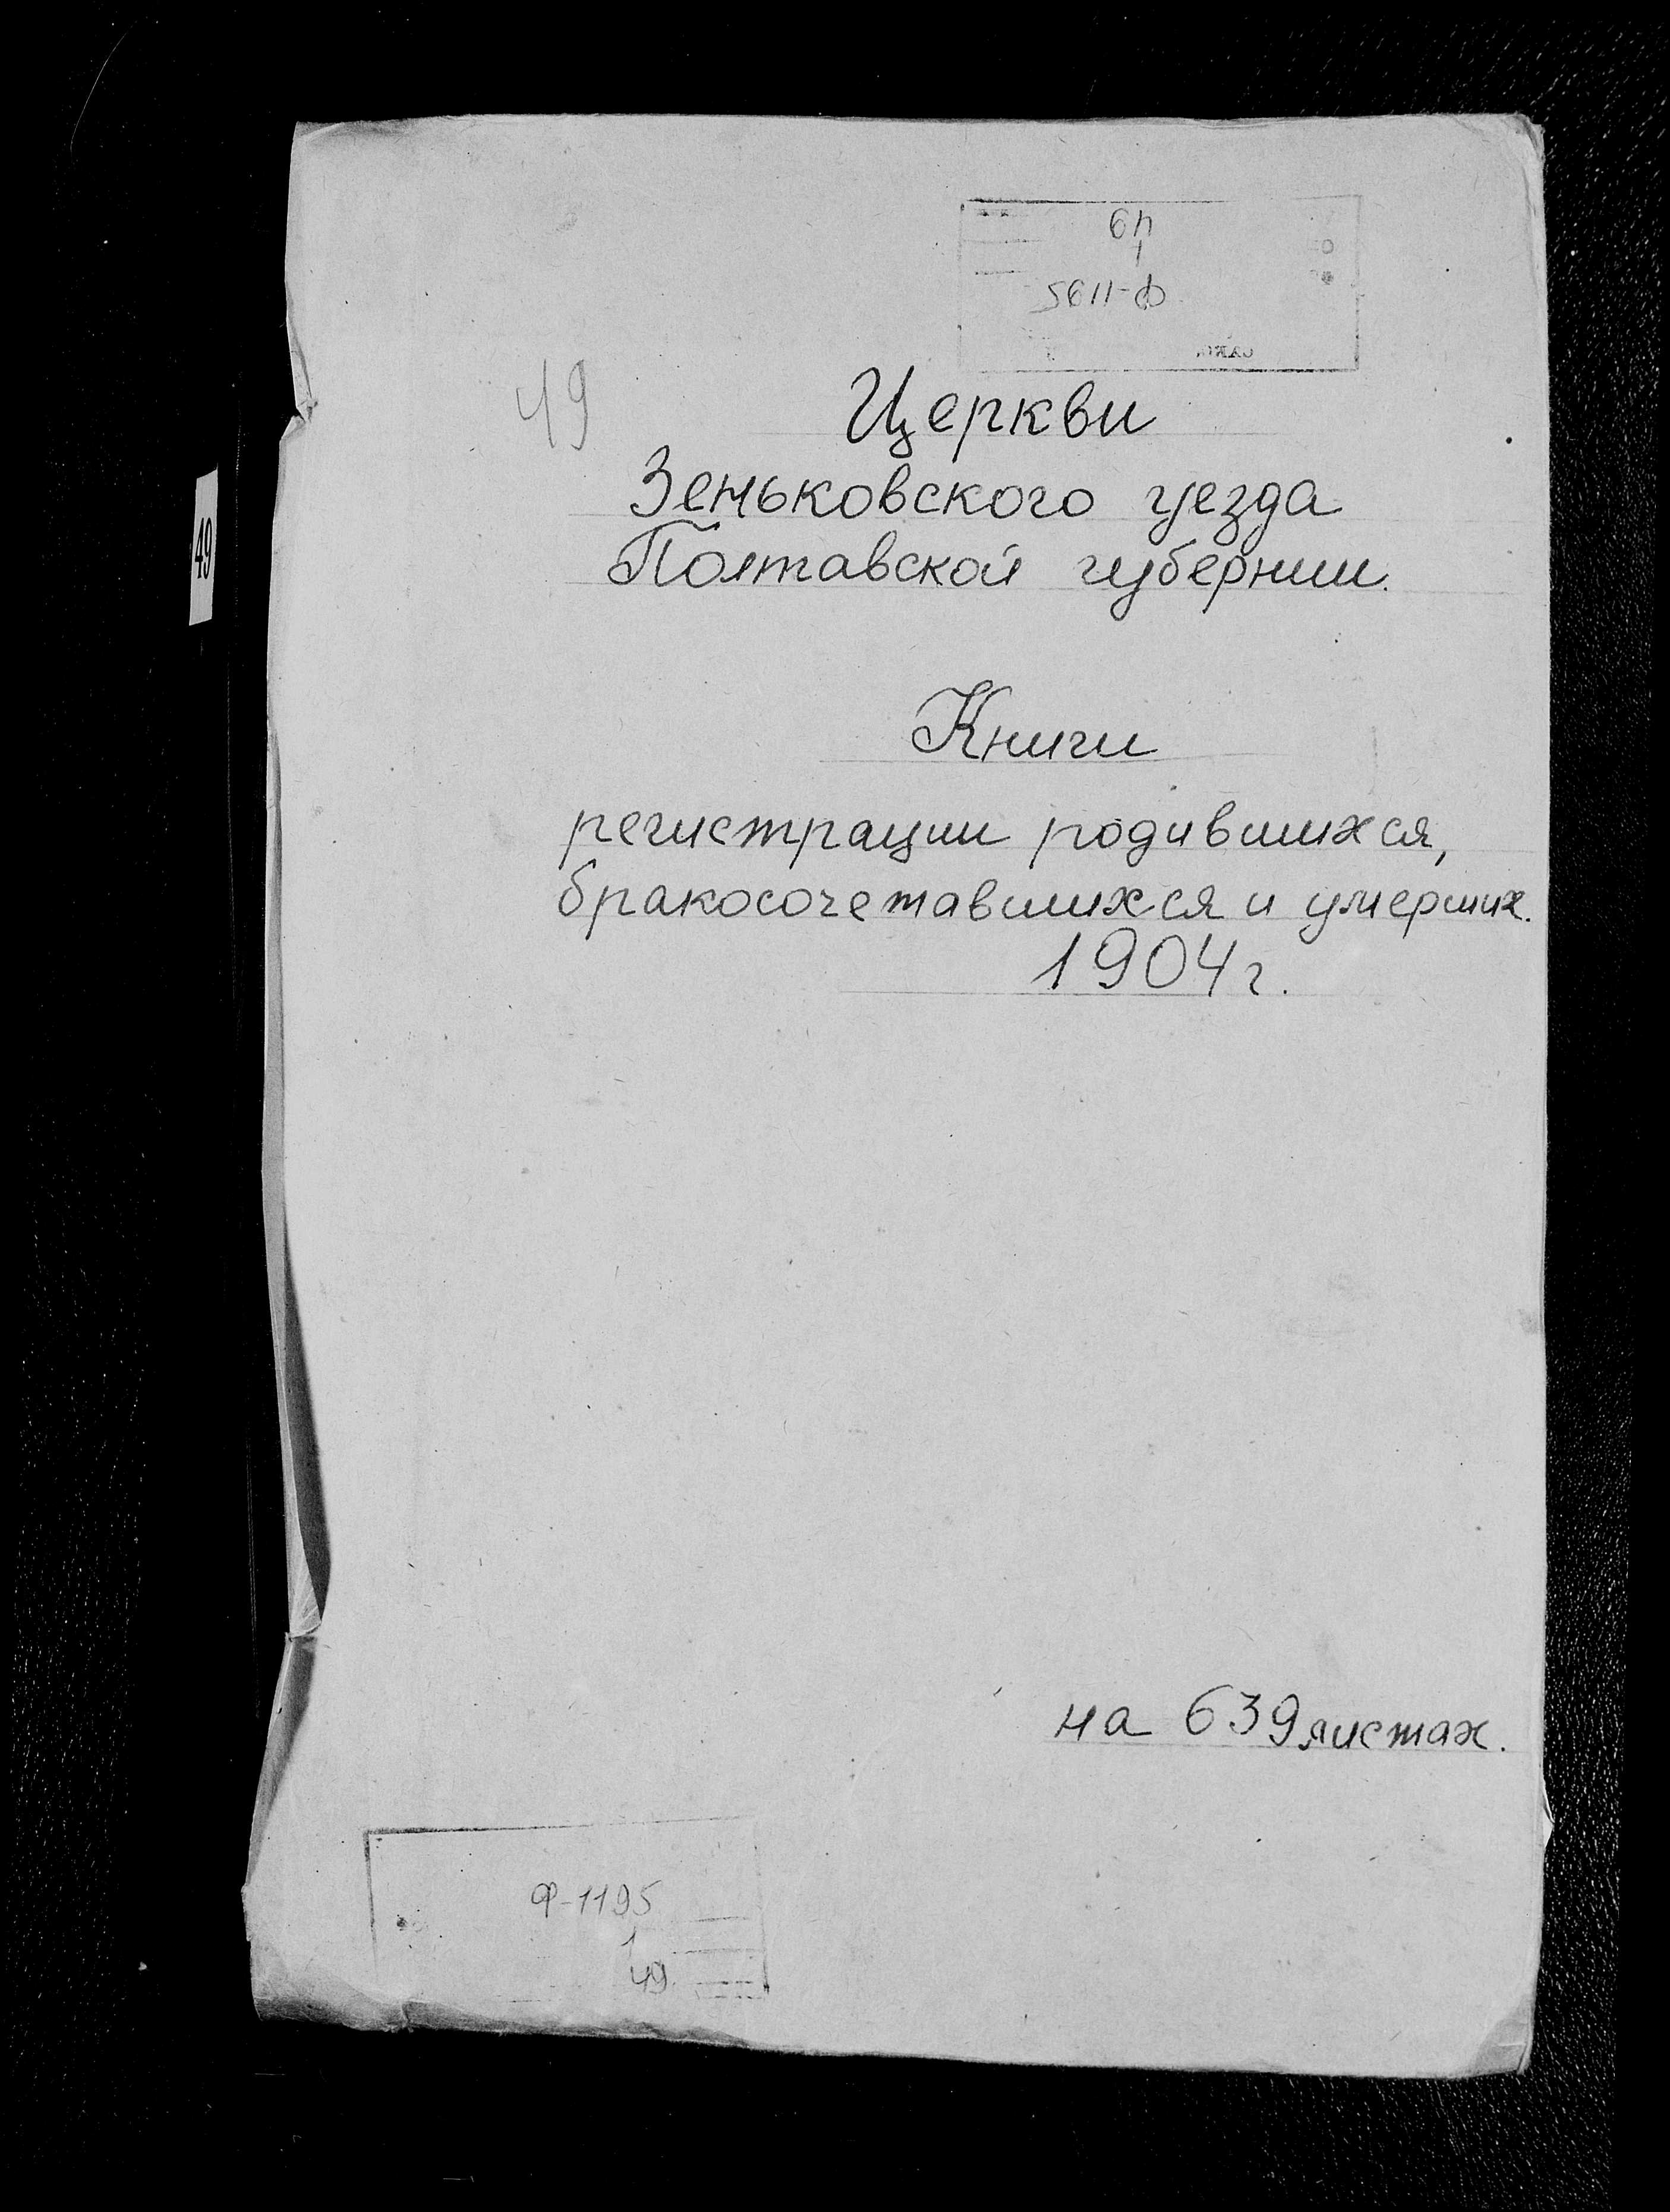 49
1
Ф-1195
49
Церкви
Зеньковского уезда
Полтавской губернии.
49
Книги
регистрации родившихся,
бракосочетавшихся и умерших.
1904 г.
на 639 листах.
Ф-1195
1
49